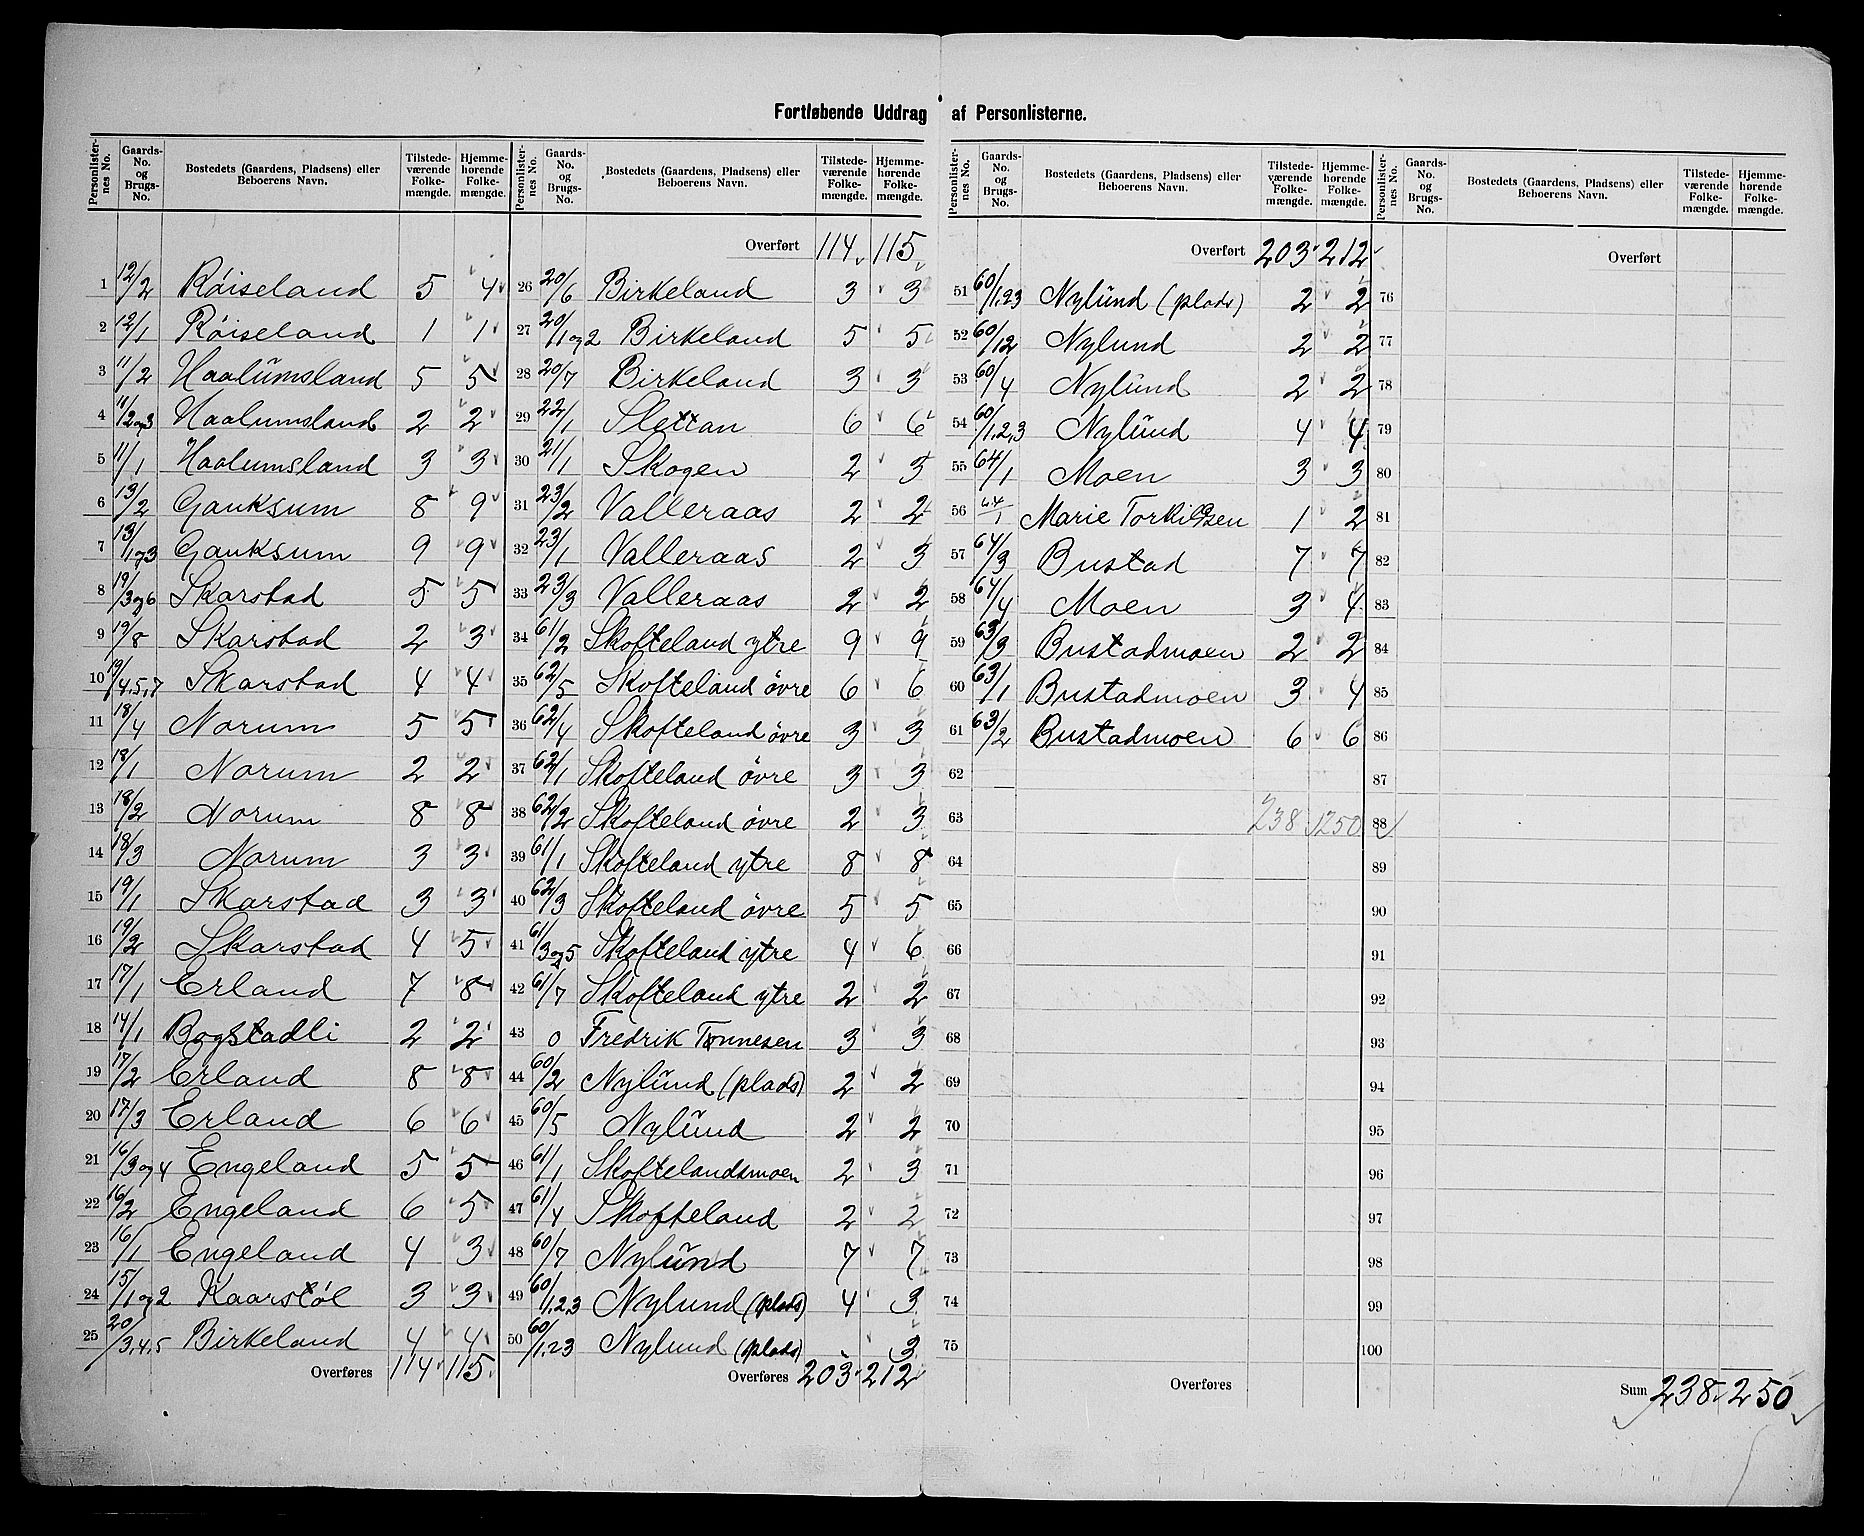 Fortløbende Uddrag af Personlisterne.
Personlister-nes No. | Gaards-No. og Brugs-No. | Bostedets (Gaardens, Pladsens) eller Beboerens Navn. | Tilstede-værende Folke-mængde. | Hjemme-hørende Folke-mængde.
1 12/2 Røiseland 5 4
2 12/1 Røiseland 1 1
3 11/2 Haalumsland 5 5
4 11/2og3 Haalumsland 2 2
5 11/1 Haalumsland 3 3
6 13/2 Gauksum 8 9
7 13/1og3 Gauksum 9 9
8 19/3og6 Skarstad 5 5
9 19/8 Skarstad 2 3
10 19/4.5.7 Skarstad 4 4
11 18/4 Norum 5 5
12 18/1 Norum 2 2
13 18/2 Norum 8 8
14 18/3 Norum 3 3
15 19/1 Skarstad 3 3
16 19/2 Skarstad 4 5
17 17/1 Erland 7 8
18 14/1 Bogstadli 2 2
19 17/2 Erland 8 8
20 17/3 Erland 6 6
21 16/3og4 Engeland 5 5
22 16/2 Engeland 6 5
23 16/1 Engeland 4 3
24 15/1og2 Kaarstøl 3 3
25 20/3.4.5 Birkeland 4 4
Overføres 114 115
Personlister-nes No. | Gaards-No. og Brugs-No. | Bostedets (Gaardens, Pladsens) eller Beboerens Navn. | Tilstede-værende Folke-mængde. | Hjemme-hørende Folke-mængde.
Overført 114 115
26 20/6 Birkeland 3 3
27 20/1og2 Birkeland 5 5
28 20/7 Birkeland 3 3
29 22/1 Slettan 6 6
30 21/1 Skogen 2 3
31 23/2 Valleraas 2 2
32 23/1 Valleraas 2 3
33 23/3 Valleraas 2 2
34 61/2 Skofteland ytre 9 9
35 62/5 Skofteland øvre 6 6
36 62/4 Skofteland øvre 3 3
37 62/1 Skofteland øvre 3 3
38 62/2 Skofteland øvre 2 3
39 61/1 Skofteland ytre 8 8
40 62/3 Skofteland øvre 5 5
41 61/3og5 Skofteland ytre 4 6
42 61/7 Skofteland ytre 2 2
43 0 Fredrik Tønnesen 3 3
44 60/2 Nylund (plads) 2 2
45 60/5 Nylund 2 2
46 61/1 Skoftelandsmoen 2 3
47 61/4 Skofteland 2 2
48 60/7 Nylund 7 7
49 60/1.2.3 Nylund (plads) 4 3
50 60/1.23 Nylund (plads) 3
Overføres 203 212
Personlister-nes No. | Gaards-No. og Brugs-No. | Bostedets (Gaardens, Pladsens) eller Beboerens Navn. | Tilstede-værende Folke-mængde. | Hjemme-hørende Folke-mængde.
Overført 203 212
51 60/1.23 Nylund (plads) 2 2
52 60/12 Nylund 2 2
53 60/4 Nylund 2 2
54 60/1.2.3 Nylund 4 4
55 64/1 Moen 3 3
56 64/1 Marie Torkildsen 1 2
57 64/3 Bustad 7 7
58 64/4 Moen 3 4
59 63/3 Bustadmoen 2 2
60 63/1 Bustadmoen 3 4
61 63/2 Bustadmoen 6 6
62
63 238 250
64
65
66
67
68
69
70
71
72
73
74
75
Overføres
Personlister-nes No. | Gaards-No. og Brugs-No. | Bostedets (Gaardens, Pladsens) eller Beboerens Navn. | Tilstede-værende Folke-mængde. | Hjemme-hørende Folke-mængde.
Overført
76
77
78
79
80
81
82
83
84
85
86
87
88
89
90
91
92
93
94
95
96
97
98
99
100
Sum 238 250